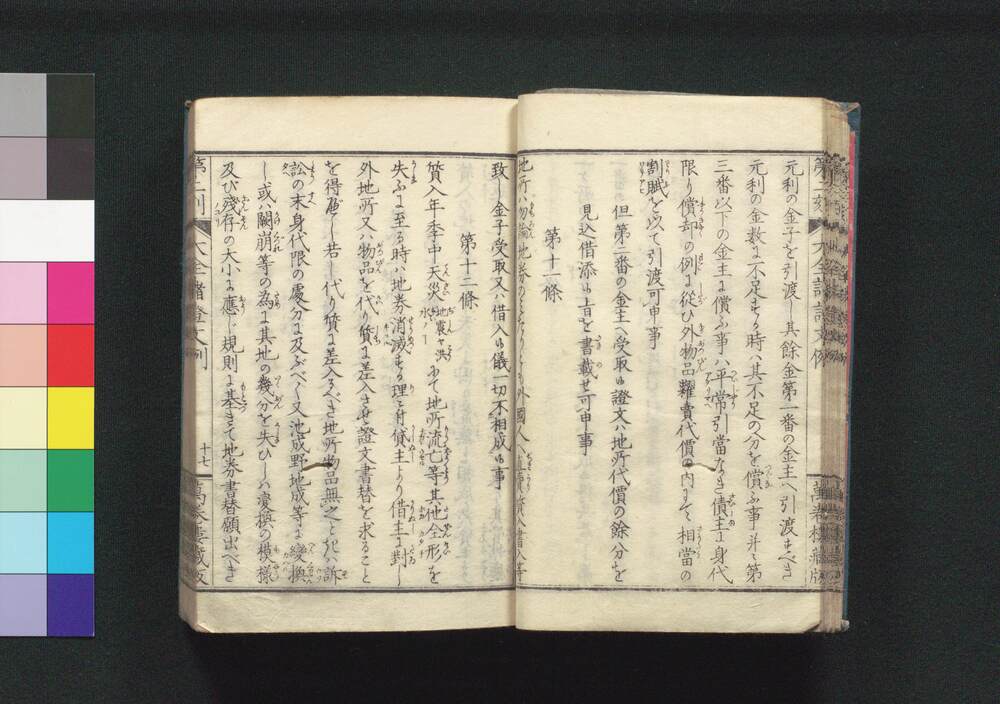 元利の金子を引渡し其餘金第一番の金主へ引渡すべき
元利の金数に不足する時ハ其不足の分を償ふ事并に第
三番以下の金主に償ふ事ハ平常引當なき債主に身代
限り償却の例に從ひ外物品糶賣代價の内にて相當の
割賦を以て引渡可申事
但第二番の金主へ受取候證文ハ地所代價の餘分を
見込借添候上旨を書載せ可申事
第十一條
地所ハ勿論地券のみたりとも外國人へ賣買質入書入等
致し金子受取又ハ借入候儀一切不相成候事
第十二條
質入年季中天災地震や洪水ノにて地所流亡等其他全形を
失ふに至る時ハ地券消滅する理に付貸主より借主に對し
外地所又ハ物品を代り質に差入させ證文書替を求ること
を得べし若し代り質に差入るべき地所物品無之とき訴
訟の末身代限の處分に及ぶべし又池成野地成等に變換
し或ハ闕崩等の為に其地の幾分を失ひしハ變換の模様
及び残存の大小に應じ規則に基きて地券書替願出べき
第二列
大全諸證文例
十七